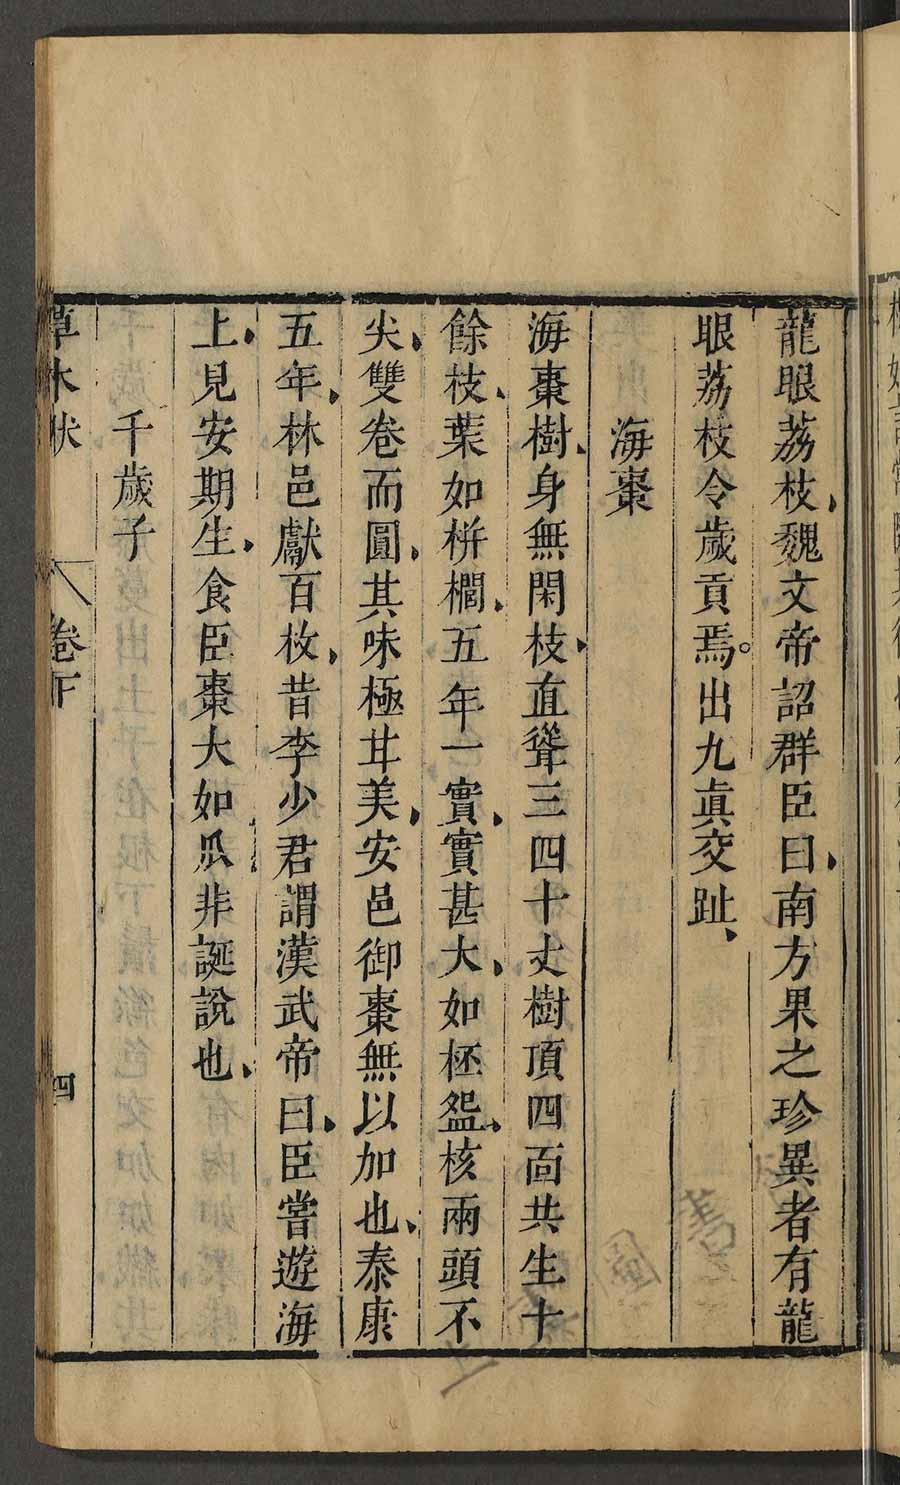 龍眼荔枝魏文帝詔群臣曰南方果之珍異者有龍
眼荔枝令歲貢焉。出九眞交趾、
海棗
海棗樹、身無閑枝、直聳三四十丈樹頂四面共生十
餘枝、葉如栟櫚、五年一實、實甚大、如柸盌、核兩頭不
尖、雙卷而圓、其味極甘美、安邑御棗無以加也、泰康
五年、林邑獻百枚、昔李少君謂漢武帝曰、臣嘗遊海
上、見安期生、食臣棗大如瓜非誕說也、
千歲子
草木狀 卷下 四